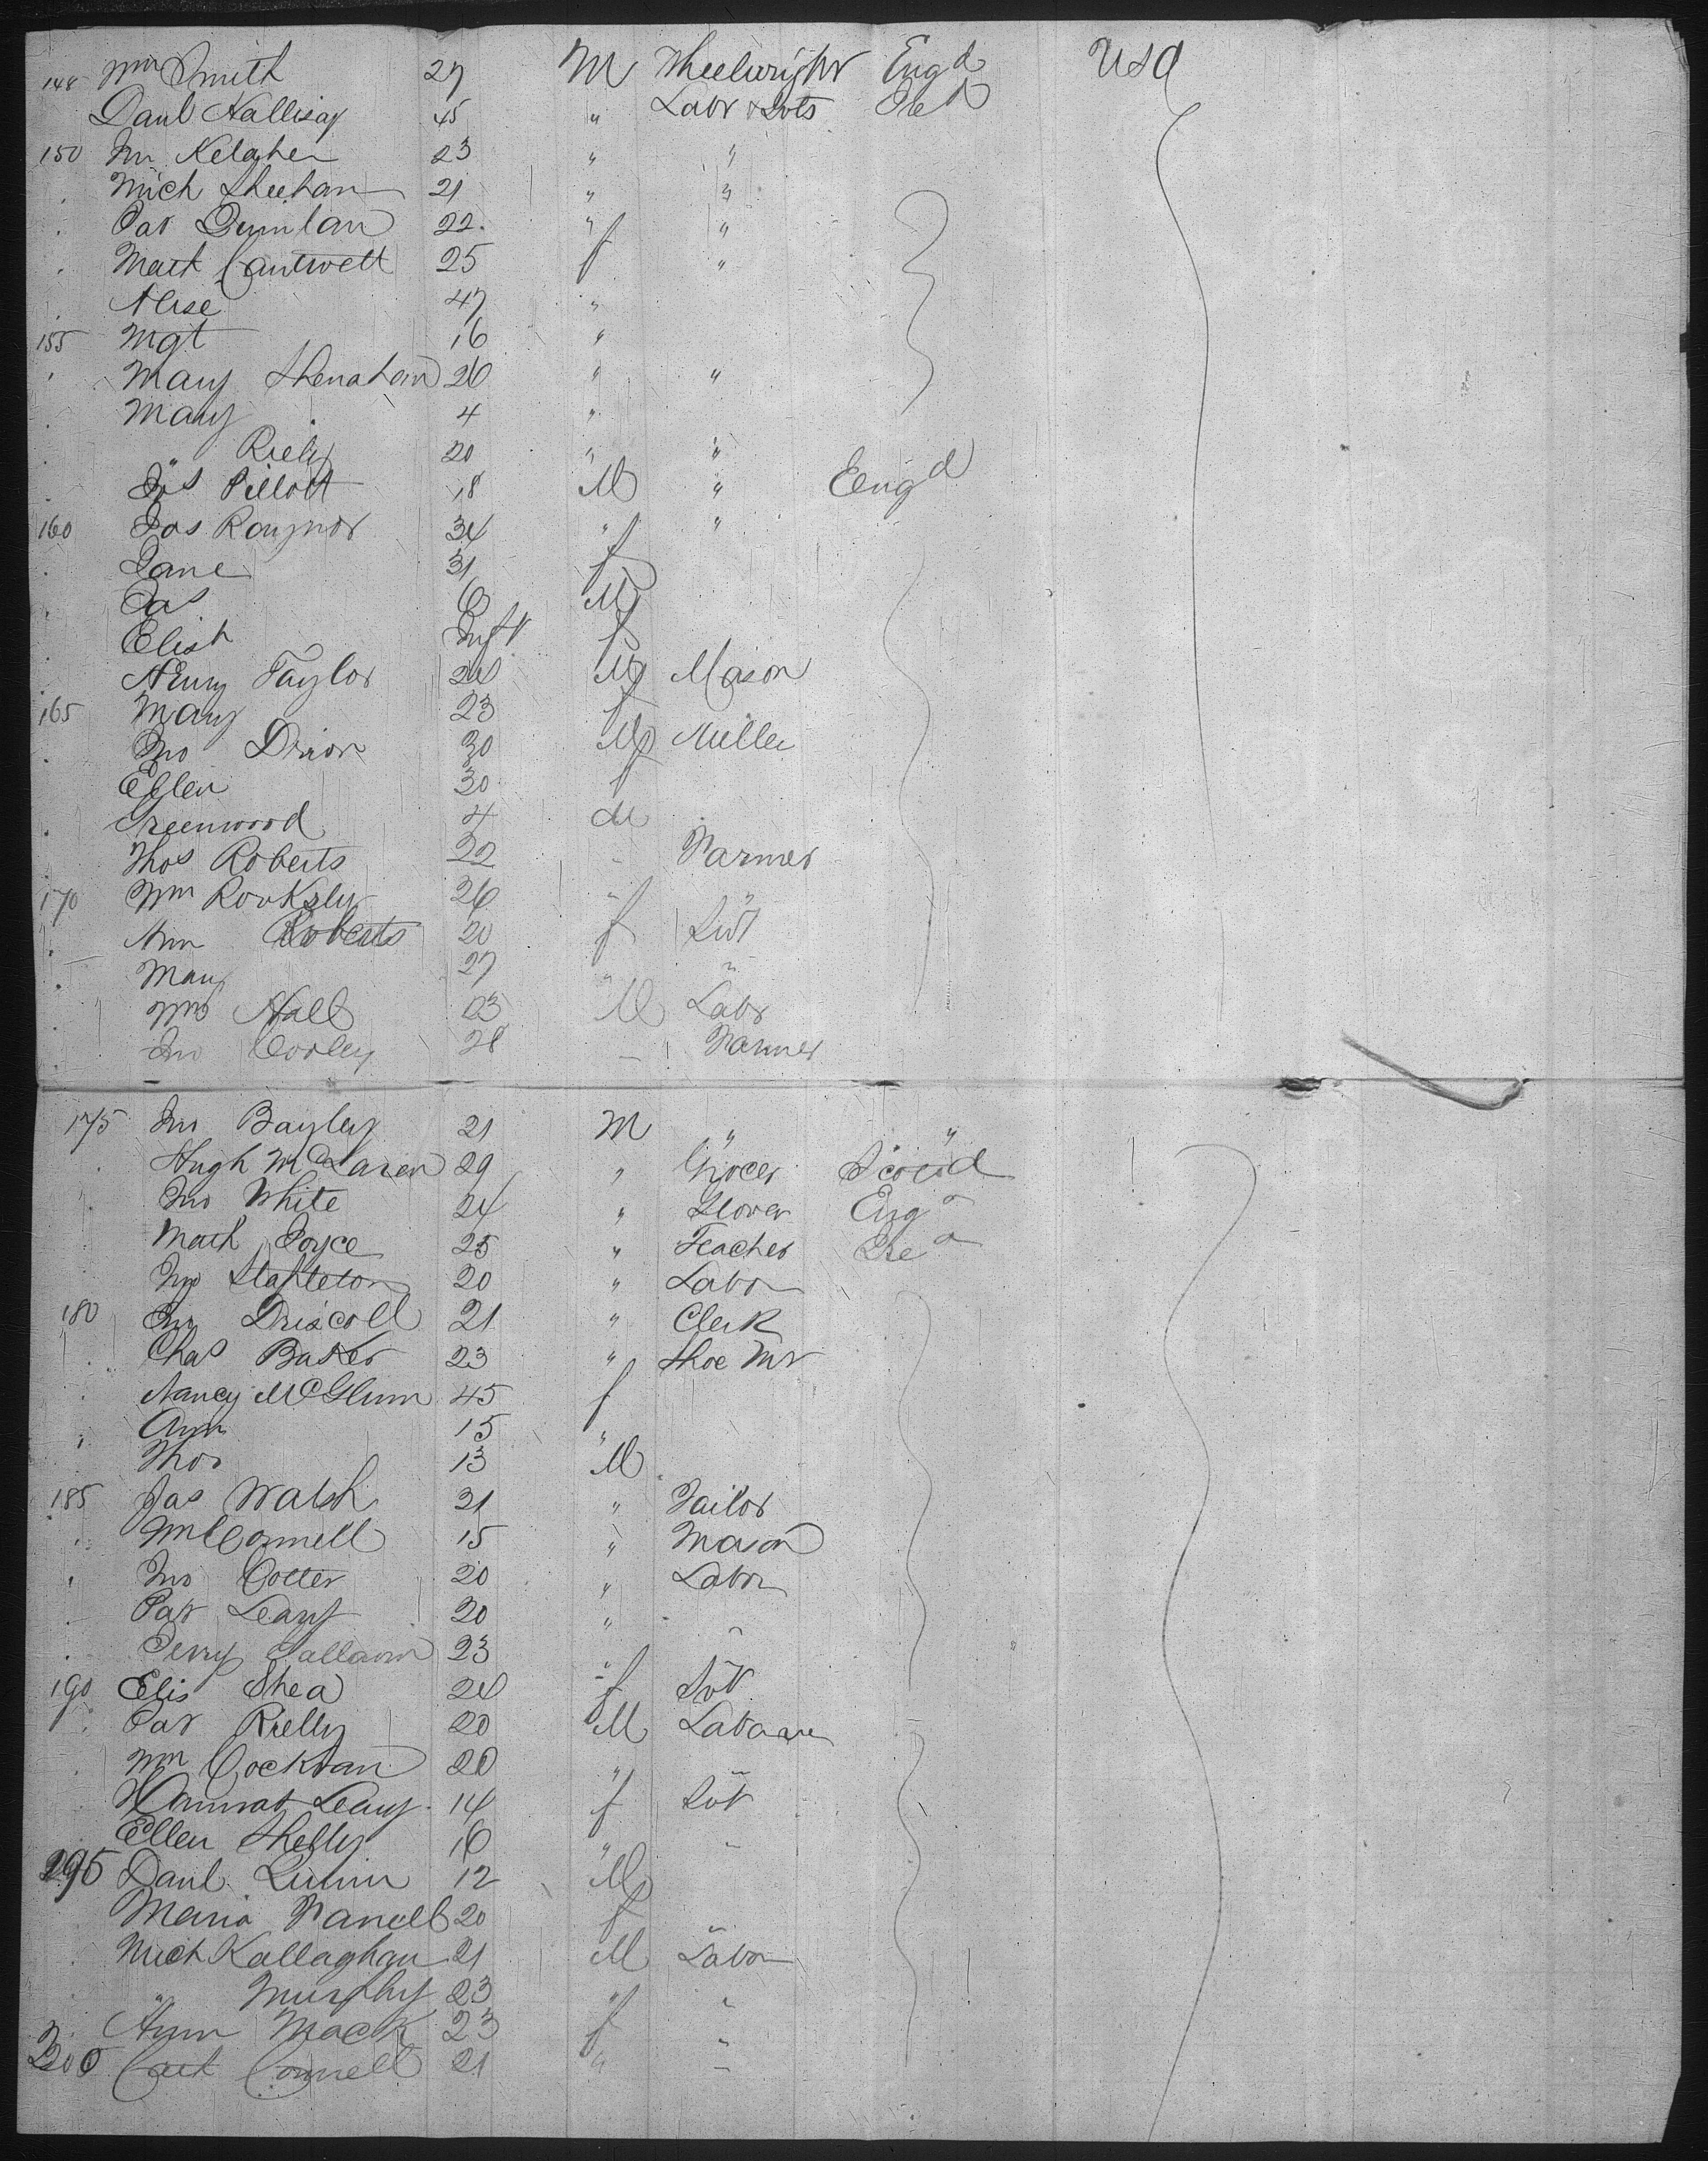 148 Wm Smith 27 M Wheelwright Engd USA
Danl Hallisay 45 " Labr & Svts Ired
150 Jno Kelaher 23 " "
Mich Sheehan 21 " "
Pat Quinlan 22 " "
Matt Cantwell 25 f "
Alise 47 "
155 Mgt 16 "
Mary Shenahan 26 " "
Mary 4 "
" Riely 20 " "
Jos Pillott 18 M " Engd
160 Jas Raynor 34 " "
Jane 31 f
Jas 6 M
Elist Inft f
Henry Taylor 24 M Mason
165 Mary 23 f
Jno Drior 30 M Miller
Ellen 30 f
Greenwood 4 M
Thos Roberts 22 Farmer
170 Wm Rooksly 26 " "
Ann Roberts 20 f Svt
Mary 27 " "
Wm Hall 23 M Labr
Jno Corley 28 Farmer
175 Jno Bayley 21 M " "
Hugh McLaren 29 " Grocer Scotd
Jno White 24 " Glover Engd
Math Joyce 25 " Teacher Ired
Jno Stapleton 20 " Labor
180 Jno Driscoll 21 " Clerk
Chas Baker 23 " Shoe Mr
Nancy McGlinn 45 f
Ann 15 "
Thos 13 M
185 Jas Walsh 21 " Tailor
Wm Connell 15 " Mason
Jno Cotter 20 " Labor
Pat Leary 20 " "
Perry Sallavin 23 "
190 Elis Shea 24 f Svt
Pat Rielly 20 M Labour
Wm Cocktan 20 "
Hannat Leary 14 f Svt
Ellen Shelly 16 " "
295 Danl Quinn 12 M
Maria Farrell 20 f
Mich Kallaghan 21 M Labor
" Murphy 23 " "
Ann Mack 23 f "
200 Cart Connell 21 " "